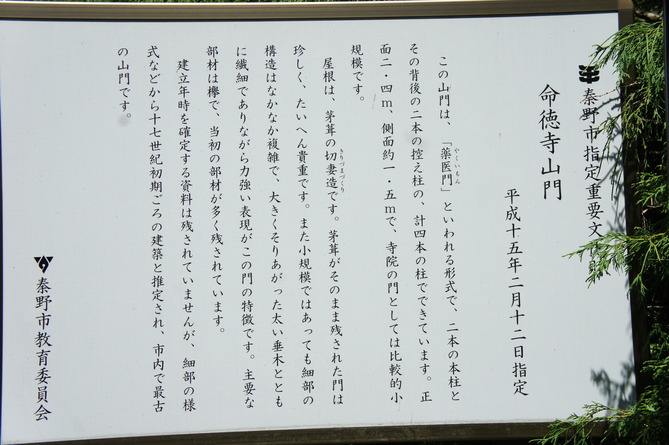 秦野市指定重要文
命徳寺山門
平成十五年二月十二日指定
この山門は、「薬医門」といわれる形式で、二本の本柱と
やくいもん
その背後の二本の控え柱の、計四本の柱でできています。正
面二・四m、側面約一・五mで、寺院の門としては比較的小
規模です。
屋根は、茅葺の切妻造です。茅葺がそのまま残された門は
きりづまづくり
珍しく、たいへん貴重です。また小規模ではあっても細部の
構造はなかなか複雑で、大きくそりあがった太い垂木ととも
に繊細でありながら力強い表現がこの門の特徴です。主要な
部材は欅で、当初の部材が多く残されています。
建立年時を確定する資料は残されていませんが、細部の様
式などから十七世紀初期ごろの建築と推定され、市内で最古
の山門です。
秦野市教育委員会